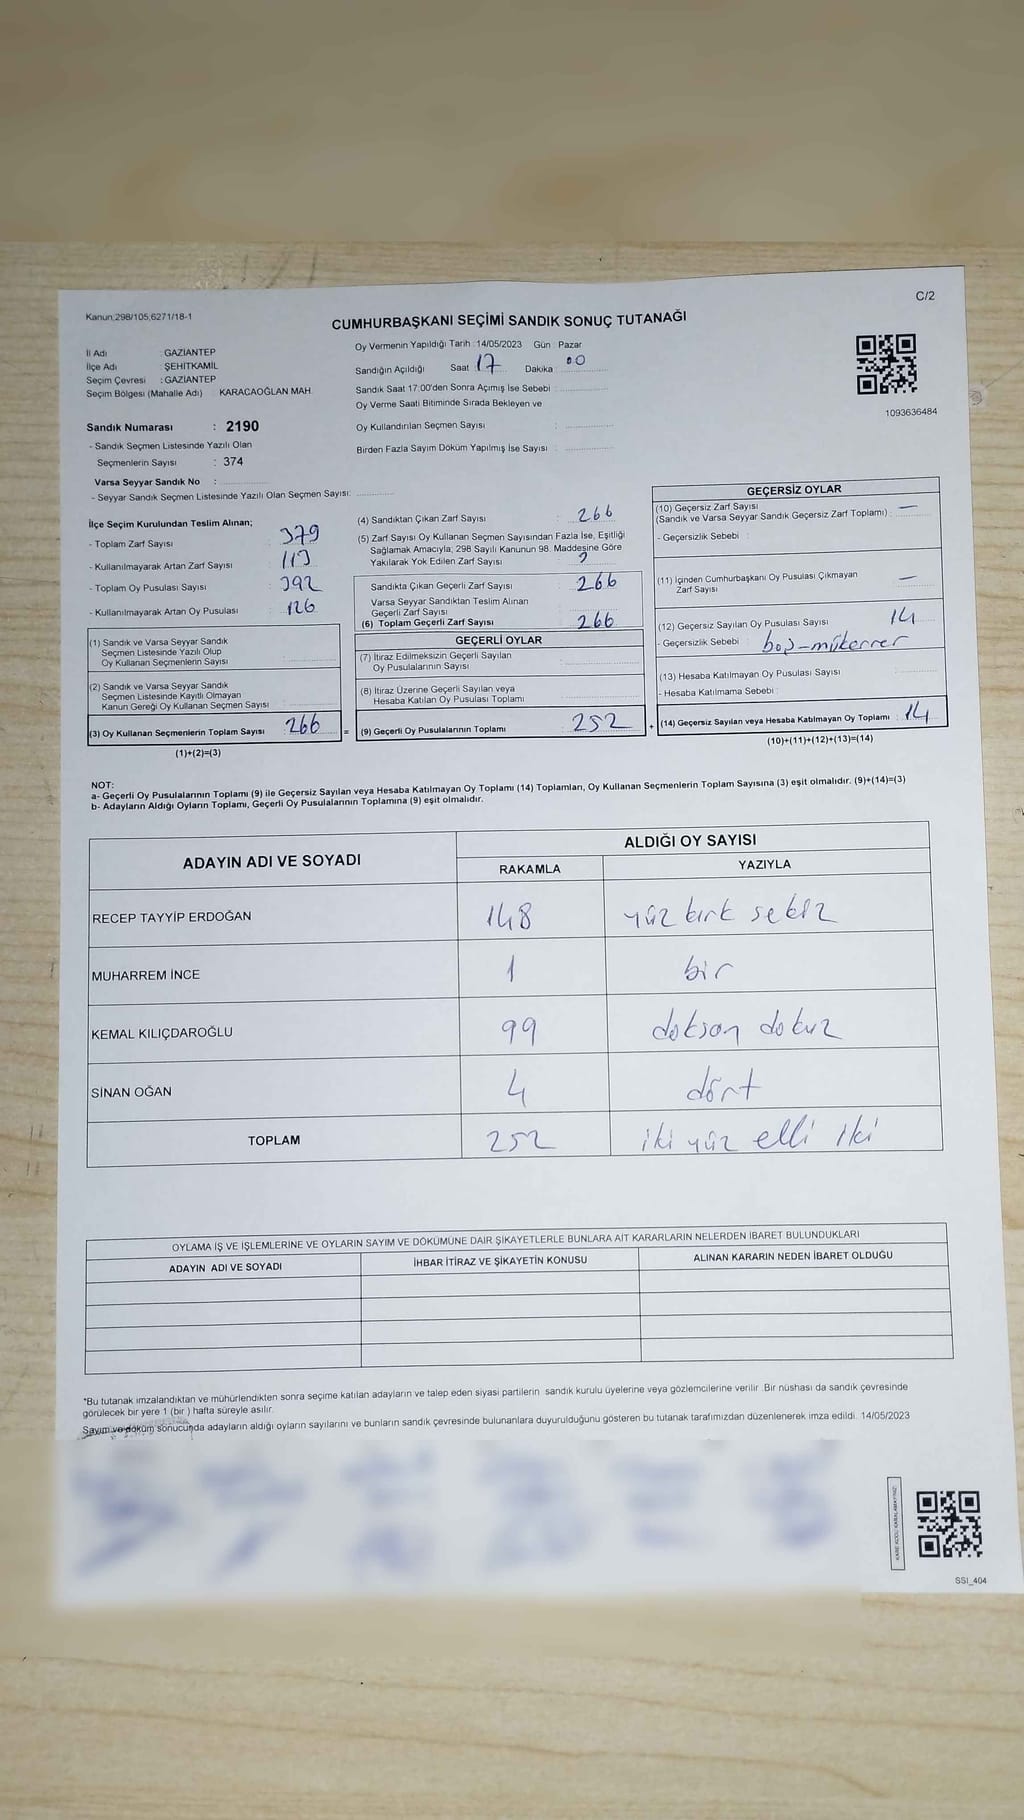 C/2
Kanun;298/105,6271/18-1
CUMHURBAŞKANI SEÇİMİ SANDIK SONUÇ TUTANAĞI
İl Adı : GAZİANTEP
İlçe Adı : ŞEHİTKAMİL
Seçim Çevresi : GAZİANTEP
Seçim Bölgesi (Mahalle Adı) KARACAOĞLAN MAH.
Oy Vermenin Yapıldığı Tarih : 14/05/2023 Gün : Pazar
Sandığın Açıldığı Saat 17 Dakika : 00
Sandık Saat 17:00'den Sonra Açımış İse Sebebi :
Oy Verme Saati Bitiminde Sırada Bekleyen ve
Oy Kullandırılan Seçmen Sayısı :
Birden Fazla Sayım Döküm Yapılmış İse Sayısı :
1093636484
Sandık Numarası : 2190
- Sandık Seçmen Listesinde Yazılı Olan
Seçmenlerin Sayısı : 374
Varsa Seyyar Sandık No :
- Seyyar Sandık Seçmen Listesinde Yazılı Olan Seçmen Sayısı:
İlçe Seçim Kurulundan Teslim Alınan;
- Toplam Zarf Sayısı : 379
- Kullanılmayarak Artan Zarf Sayısı : 113
- Toplam Oy Pusulası Sayısı : 392
- Kullanılmayarak Artan Oy Pusulası : 126
(1) Sandık ve Varsa Seyyar Sandık
Seçmen Listesinde Yazılı Olup
Oy Kullanan Seçmenlerin Sayısı :
(2) Sandık ve Varsa Seyyar Sandık
Seçmen Listesinde Kayıtlı Olmayan
Kanun Gereği Oy Kullanan Seçmen Sayısı :
(3) Oy Kullanan Seçmenlerin Toplam Sayısı : 266 =
(1)+(2)=(3)
(4) Sandıktan Çıkan Zarf Sayısı : 266
(5) Zarf Sayısı Oy Kullanan Seçmen Sayısından Fazla İse, Eşitliği
Sağlamak Amacıyla; 298 Sayılı Kanunun 98. Maddesine Göre
Yakılarak Yok Edilen Zarf Sayısı :
Sandıkta Çıkan Geçerli Zarf Sayısı : 266
Varsa Seyyar Sandıktan Teslim Alınan
Geçerli Zarf Sayısı :
(6) Toplam Geçerli Zarf Sayısı : 266
GEÇERLİ OYLAR
(7) İtiraz Edilmeksizin Geçerli Sayılan
Oy Pusulalarının Sayısı :
(8) İtiraz Üzerine Geçerli Sayılan veya
Hesaba Katılan Oy Pusulası Toplamı :
(9) Geçerli Oy Pusulalarının Toplamı : 252 +
GEÇERSİZ OYLAR
(10) Geçersiz Zarf Sayısı
(Sandık ve Varsa Seyyar Sandık Geçersiz Zarf Toplamı) : —
- Geçersizlik Sebebi :
(11) İçinden Cumhurbaşkanı Oy Pusulası Çıkmayan
Zarf Sayısı : —
(12) Geçersiz Sayılan Oy Pusulası Sayısı : 14
- Geçersizlik Sebebi : boş-mükerrer
(13) Hesaba Katılmayan Oy Pusulası Sayısı :
- Hesaba Katılmama Sebebi :
(14) Geçersiz Sayılan veya Hesaba Katılmayan Oy Toplamı : 14
(10)+(11)+(12)+(13)=(14)
NOT:
a- Geçerli Oy Pusulalarının Toplamı (9) ile Geçersiz Sayılan veya Hesaba Katılmayan Oy Toplamı (14) Toplamları, Oy Kullanan Seçmenlerin Toplam Sayısına (3) eşit olmalıdır. (9)+(14)=(3)
b- Adayların Aldığı Oyların Toplamı, Geçerli Oy Pusulalarının Toplamına (9) eşit olmalıdır.
ADAYIN ADI VE SOYADI ALDIĞI OY SAYISI
RAKAMLA YAZIYLA
RECEP TAYYİP ERDOĞAN 148 yüz kırk sekiz
MUHARREM İNCE 1 bir
KEMAL KILIÇDAROĞLU 99 doksan dokuz
SİNAN OĞAN 4 dört
TOPLAM 252 iki yüz elli iki
OYLAMA İŞ VE İŞLEMLERİNE VE OYLARIN SAYIM VE DÖKÜMÜNE DAİR ŞİKAYETLERLE BUNLARA AİT KARARLARIN NELERDEN İBARET BULUNDUKLARI
ADAYIN ADI VE SOYADI İHBAR İTİRAZ VE ŞİKAYETİN KONUSU ALINAN KARARIN NEDEN İBARET OLDUĞU
*Bu tutanak imzalandıktan ve mühürlendikten sonra seçime katılan adayların ve talep eden siyasi partilerin sandık kurulu üyelerine veya gözlemcilerine verilir .Bir nüshası da sandık çevresinde
görülecek bir yere 1 (bir ) hafta süreyle asılır.
Sayım ve döküm sonucunda adayların aldığı oyların sayılarını ve bunların sandık çevresinde bulunanlara duyurulduğunu gösteren bu tutanak tarafımızdan düzenlenerek imza edildi. 14/05/2023
SSI_404